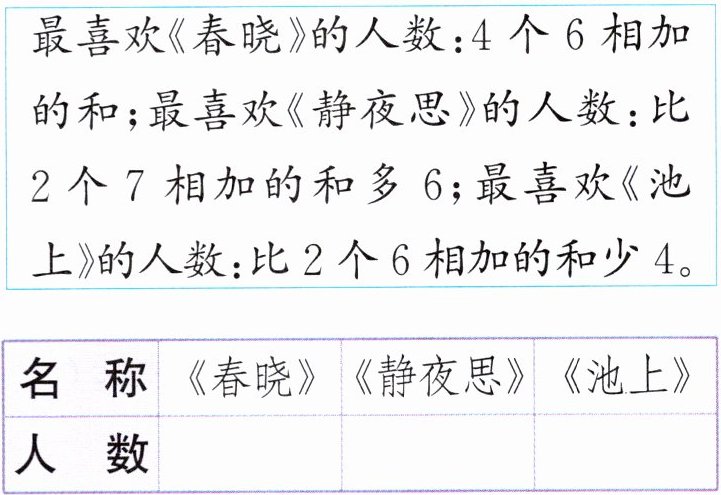 最喜欢《春晓》的人数:4 个 6 相加
的和;最喜欢《静夜思》的人数:比
2 个 7 相加的和多 6;最喜欢《池
上》的人数:比 2 个 6 相加的和少 4。
名 称 《春晓》 《静夜思》 《池上》
人 数